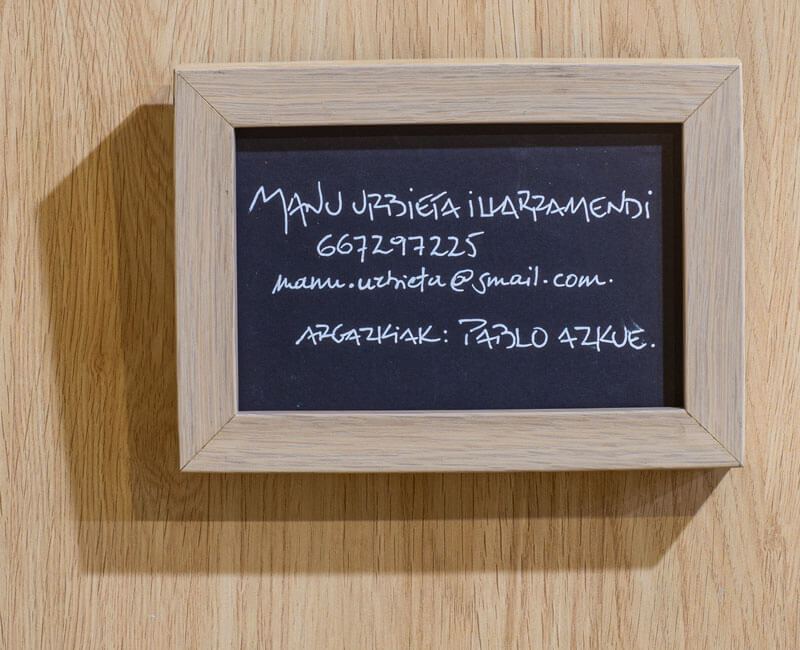 MANU URBIETA ILLARRAMENDI
667297225
manu.urbieta@gmail.com.
ARGAZKIAK: PABLO AZKUE.